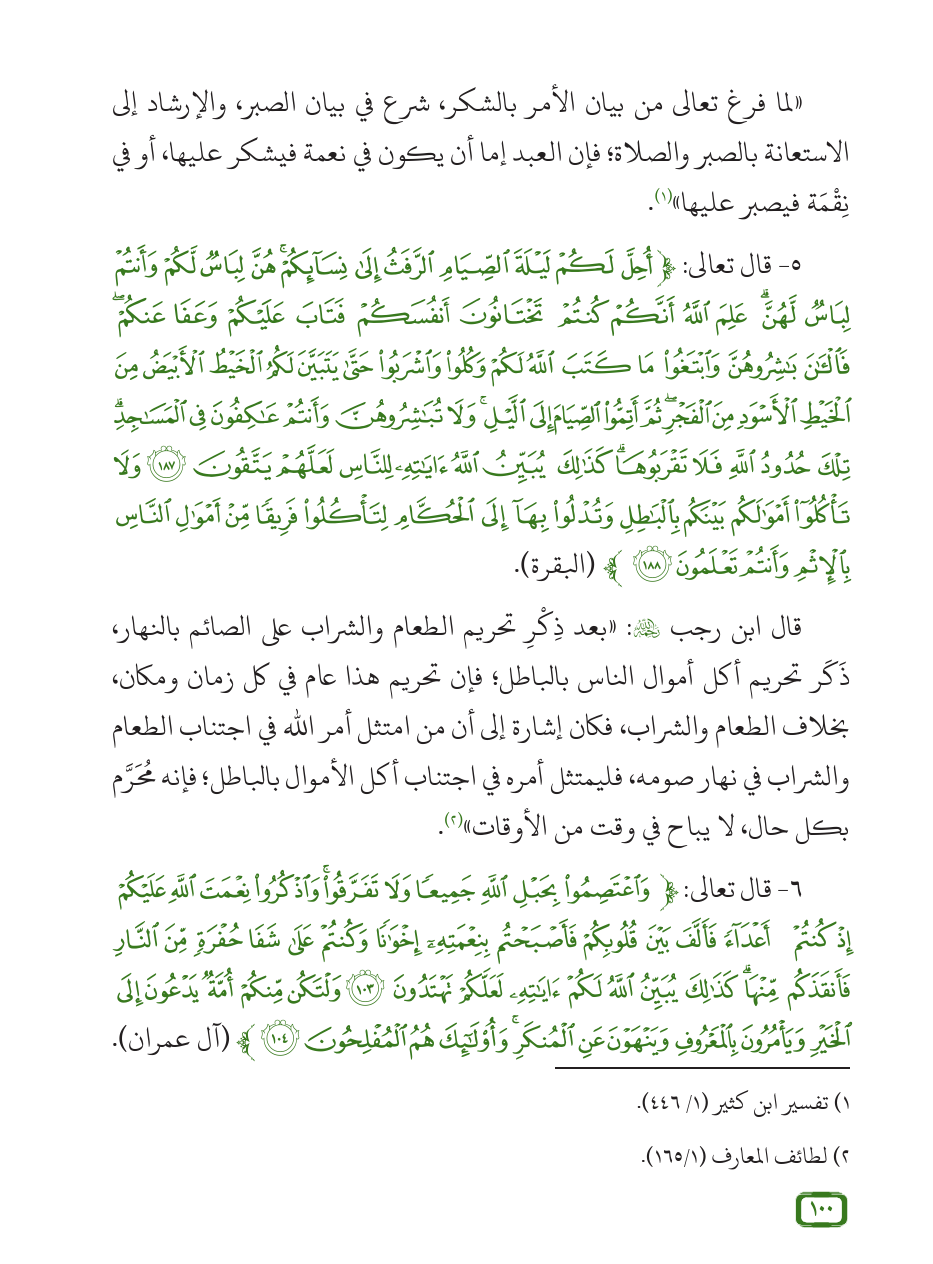 «لما فرغ تعالى من بيان الأمر بالشكر، شرع في بيان الصبر، والإرشاد إلى
الاستعانة بالصبر والصلاة؛ فإن العبد إما أن يكون في نعمة فيشكر عليها، أو في
نِقْمَة فيصبر عليها»(١).
٥- قال تعالى: ﴿ أُحِلَّ لَكُمْ لَيْلَةَ ٱلصِّيَامِ ٱلرَّفَثُ إِلَىٰ نِسَآئِكُمْ ۚ هُنَّ لِبَاسٌ لَّكُمْ وَأَنتُمْ
لِبَاسٌ لَّهُنَّ ۗ عَلِمَ ٱللَّهُ أَنَّكُمْ كُنتُمْ تَخْتَانُونَ أَنفُسَكُمْ فَتَابَ عَلَيْكُمْ وَعَفَا عَنكُمْ ۖ
فَٱلْـَٰٔنَ بَـٰشِرُوهُنَّ وَٱبْتَغُوا۟ مَا كَتَبَ ٱللَّهُ لَكُمْ وَكُلُوا۟ وَٱشْرَبُوا۟ حَتَّىٰ يَتَبَيَّنَ لَكُمُ ٱلْخَيْطُ ٱلْأَبْيَضُ مِنَ
ٱلْخَيْطِ ٱلْأَسْوَدِ مِنَ ٱلْفَجْرِ ۖ ثُمَّ أَتِمُّوا۟ ٱلصِّيَامَ إِلَى ٱلَّيْلِ ۚ وَلَا تُبَـٰشِرُوهُنَّ وَأَنتُمْ عَـٰكِفُونَ فِى ٱلْمَسَـٰجِدِ ۗ
تِلْكَ حُدُودُ ٱللَّهِ فَلَا تَقْرَبُوهَا ۗ كَذَٰلِكَ يُبَيِّنُ ٱللَّهُ ءَايَـٰتِهِۦ لِلنَّاسِ لَعَلَّهُمْ يَتَّقُونَ ١٨٧ وَلَا
تَأْكُلُوٓا۟ أَمْوَٰلَكُم بَيْنَكُم بِٱلْبَـٰطِلِ وَتُدْلُوا۟ بِهَآ إِلَى ٱلْحُكَّامِ لِتَأْكُلُوا۟ فَرِيقًا مِّنْ أَمْوَٰلِ ٱلنَّاسِ
بِٱلْإِثْمِ وَأَنتُمْ تَعْلَمُونَ ١٨٨ ﴾ (البقرة).
قال ابن رجب رحمه الله: «بعد ذِكْرِ تحريم الطعام والشراب على الصائم بالنهار،
ذَكَر تحريم أكل أموال الناس بالباطل؛ فإن تحريم هذا عام في كل زمان ومكان،
بخلاف الطعام والشراب، فكان إشارة إلى أن من امتثل أمر الله في اجتناب الطعام
والشراب في نهار صومه، فليمتثل أمره في اجتناب أكل الأموال بالباطل؛ فإنه مُحَرَّم
بكل حال، لا يباح في وقت من الأوقات»(٢).
٦- قال تعالى: ﴿ وَٱعْتَصِمُوا۟ بِحَبْلِ ٱللَّهِ جَمِيعًا وَلَا تَفَرَّقُوا۟ ۚ وَٱذْكُرُوا۟ نِعْمَتَ ٱللَّهِ عَلَيْكُمْ
إِذْ كُنتُمْ أَعْدَآءً فَأَلَّفَ بَيْنَ قُلُوبِكُمْ فَأَصْبَحْتُم بِنِعْمَتِهِۦٓ إِخْوَٰنًا وَكُنتُمْ عَلَىٰ شَفَا حُفْرَةٍ مِّنَ ٱلنَّارِ
فَأَنقَذَكُم مِّنْهَا ۗ كَذَٰلِكَ يُبَيِّنُ ٱللَّهُ لَكُمْ ءَايَـٰتِهِۦ لَعَلَّكُمْ تَهْتَدُونَ ١٠٣ وَلْتَكُن مِّنكُمْ أُمَّةٌ يَدْعُونَ إِلَى
ٱلْخَيْرِ وَيَأْمُرُونَ بِٱلْمَعْرُوفِ وَيَنْهَوْنَ عَنِ ٱلْمُنكَرِ ۚ وَأُو۟لَـٰٓئِكَ هُمُ ٱلْمُفْلِحُونَ ١٠٤ ﴾ (آل عمران).
١) تفسير ابن كثير (١/ ٤٤٦).
٢) لطائف المعارف (١/١٦٥).
١٠٠